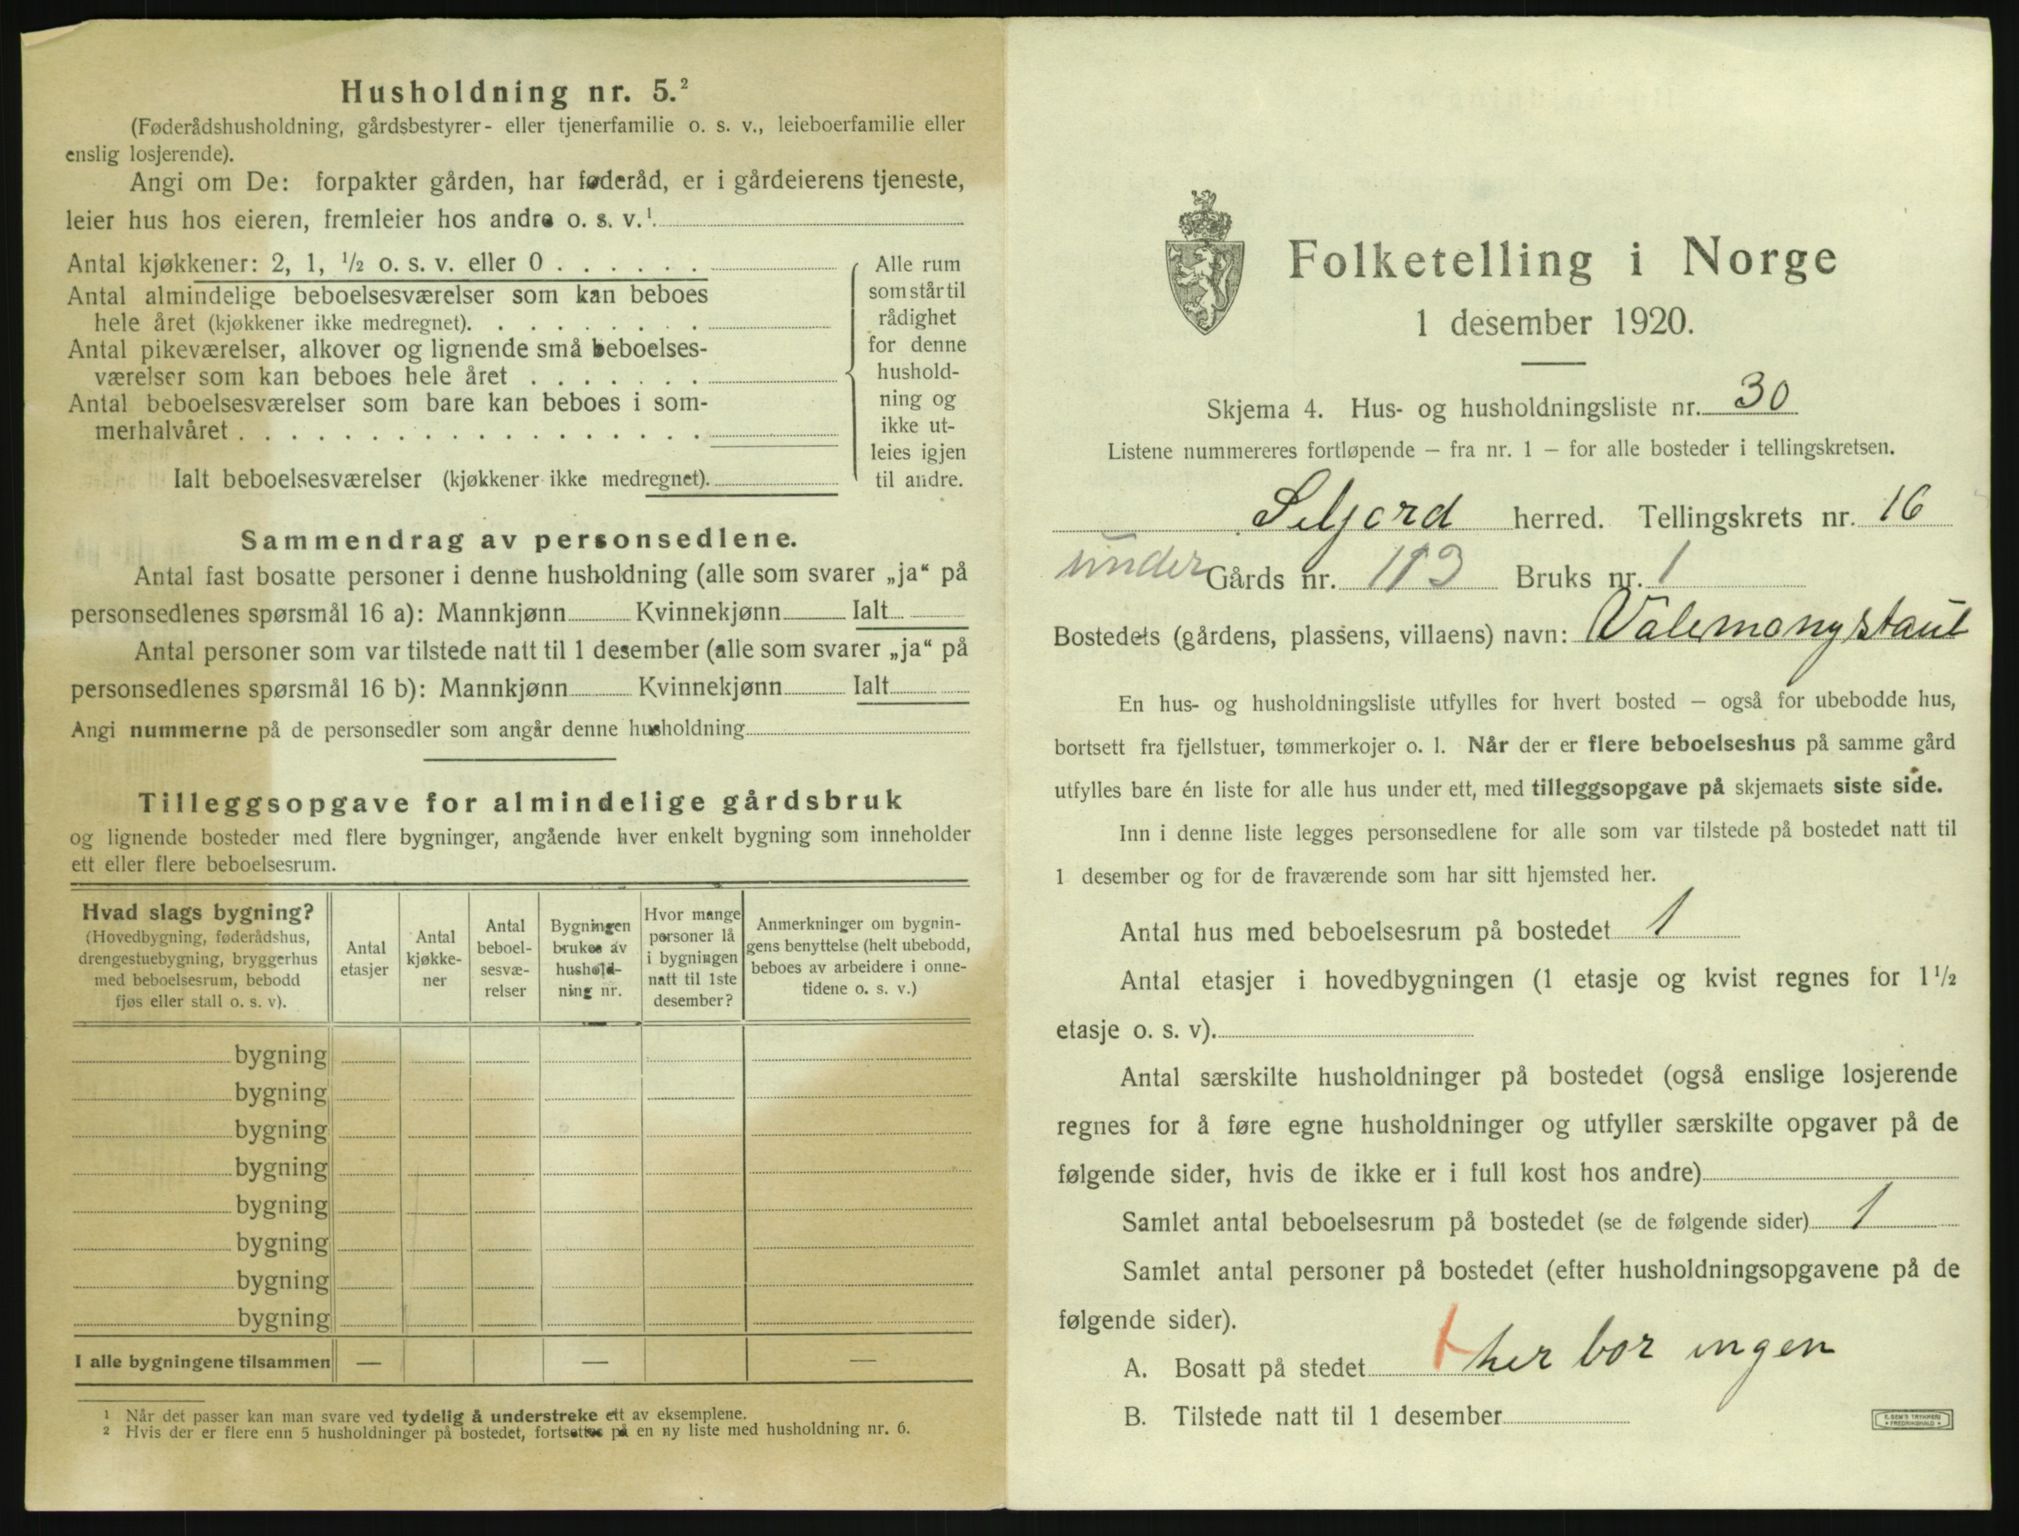 Husholdning nr. 5.²
(Føderådshusholdning, gårdsbestyrer- eller tjenerfamilie o. s. v., leieboerfamilie eller
enslig losjerende).
Angi om De: forpakter gården, har føderåd, er i gårdeierens tjeneste,
leier hus hos eieren, fremleier hos andre o. s. v.¹
Antal kjøkkener: 2, 1, ½ o. s. v. eller 0 . . . . . .
Antal almindelige beboelsesværelser som kan beboes
hele året (kjøkkener ikke medregnet). . . . . . . . .
Antal pikeværelser, alkover og lignende små beboelses-
værelser som kan beboes hele året . . . . . . .
Antal beboelsesværelser som bare kan beboes i som-
merhalvåret . . . . . . . . . . . . . . . . . .
Ialt beboelsesværelser (kjøkkener ikke medregnet).
Alle rum
som står til
rådighet
for denne
hushold-
ning og
ikke ut-
leies igjen
til andre.
Sammendrag av personsedlene.
Antal fast bosatte personer i denne husholdning (alle som svarer „ja“ på
personsedlenes spørsmål 16 a): Mannkjønn Kvinnekjønn Ialt
Antal personer som var tilstede natt til 1 desember (alle som svarer „ja“ på
personsedlenes spørsmål 16 b): Mannkjønn Kvinnekjønn Ialt
Angi nummerne på de personsedler som angår denne husholdning
Tilleggsopgave for almindelige gårdsbruk
og lignende bosteder med flere bygninger, angående hver enkelt bygning som inneholder
ett eller flere beboelsesrum.
Hvad slags bygning?
(Hovedbygning, føderådshus,
drengestuebygning, bryggerhus
med beboelsesrum, bebodd
fjøs eller stall o. s. v).
Antal
etasjer
Antal
kjøkke-
ner
Antal
beboel-
sesvæ-
relser
Bygningen
brukes av
hushold-
ning nr.
Hvor mange
personer lå
i bygningen
natt til 1ste
desember?
Anmerkninger om bygnin-
gens benyttelse (helt ubebodd,
beboes av arbeidere i onne-
tidene o. s. v.)
bygning
bygning
bygning
bygning
bygning
bygning
bygning
bygning
I alle bygningene tilsammen — — —
¹ Når det passer kan man svare ved tydelig å understreke ett av eksemplene.
² Hvis der er flere enn 5 husholdninger på bostedet, fortsettes på en ny liste med husholdning nr. 6.
Folketelling i Norge
1 desember 1920.
Skjema 4. Hus- og husholdningsliste nr. 30
Listene nummereres fortløpende – fra nr. 1 – for alle bosteder i tellingskretsen.
Seljord herred. Tellingskrets nr. 16
under Gårds nr. 113 Bruks nr. 1
Bostedets (gårdens, plassens, villaens) navn: Valemonystaul
En hus- og husholdningsliste utfylles for hvert bosted – også for ubebodde hus,
bortsett fra fjellstuer, tømmerkojer o. l. Når der er flere beboelseshus på samme gård
utfylles bare én liste for alle hus under ett, med tilleggsopgave på skjemaets siste side.
Inn i denne liste legges personsedlene for alle som var tilstede på bostedet natt til
1 desember og for de fraværende som har sitt hjemsted her.
Antal hus med beboelsesrum på bostedet 1
Antal etasjer i hovedbygningen (1 etasje og kvist regnes for 1½
etasje o. s. v).
Antal særskilte husholdninger på bostedet (også enslige losjerende
regnes for å føre egne husholdninger og utfyller særskilte opgaver på de
følgende sider, hvis de ikke er i full kost hos andre)
Samlet antal beboelsesrum på bostedet (se de følgende sider) 1
Samlet antal personer på bostedet (efter husholdningsopgavene på de
følgende sider).
A. Bosatt på stedet her bor ingen
B. Tilstede natt til 1 desember
E. SEM'S TRYKKERI
FREDRIKSHALD